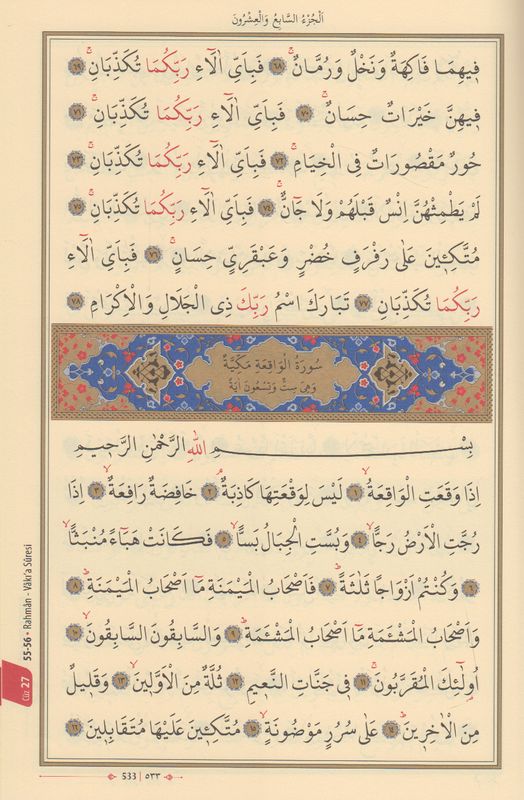 اَلْجُزْءُ السَّابِعُ وَالْعِشْرُونَ
فٖيهِمَا فَاكِهَةٌ وَنَخْلٌ وَرُمَّانٌۚ ﴿٦٨﴾ فَبِاَيِّ اٰلَٓاءِ رَبِّكُمَا تُكَذِّبَانِۚ ﴿٦٩﴾
فٖيهِنَّ خَيْرَاتٌ حِسَانٌۚ ﴿٧٠﴾ فَبِاَيِّ اٰلَٓاءِ رَبِّكُمَا تُكَذِّبَانِۚ ﴿٧١﴾
حُورٌ مَقْصُورَاتٌ فِي الْخِيَامِۚ ﴿٧٢﴾ فَبِاَيِّ اٰلَٓاءِ رَبِّكُمَا تُكَذِّبَانِۚ ﴿٧٣﴾
لَمْ يَطْمِثْهُنَّ اِنْسٌ قَبْلَهُمْ وَلَا جَٓانٌّۚ ﴿٧٤﴾ فَبِاَيِّ اٰلَٓاءِ رَبِّكُمَا تُكَذِّبَانِۚ ﴿٧٥﴾
مُتَّكِـٖٔينَ عَلٰى رَفْرَفٍ خُضْرٍ وَعَبْقَرِيٍّ حِسَانٍۚ ﴿٧٦﴾ فَبِاَيِّ اٰلَٓاءِ
رَبِّكُمَا تُكَذِّبَانِ ﴿٧٧﴾ تَبَارَكَ اسْمُ رَبِّكَ ذِي الْجَلَالِ وَالْاِكْرَامِ ﴿٧٨﴾
سُورَةُ الْوَاقِعَةِ مَكِّيَّةٌ
وَهِيَ سِتٌّ وَتِسْعُونَ اٰيَةً
بِسْمِ اللّٰهِ الرَّحْمٰنِ الرَّحٖيمِ
اِذَا وَقَعَتِ الْوَاقِعَةُۙ ﴿١﴾ لَيْسَ لِوَقْعَتِهَا كَاذِبَةٌۢ ﴿٢﴾ خَافِضَةٌ رَافِعَةٌۙ ﴿٣﴾ اِذَا
رُجَّتِ الْاَرْضُ رَجًّاۙ ﴿٤﴾ وَبُسَّتِ الْجِبَالُ بَسًّاۙ ﴿٥﴾ فَكَانَتْ هَبَٓاءً مُنْبَثًّاۙ
﴿٦﴾ وَكُنْتُمْ اَزْوَاجًا ثَلٰثَةًۜ ﴿٧﴾ فَاَصْحَابُ الْمَيْمَنَةِ مَٓا اَصْحَابُ الْمَيْمَنَةِۜ ﴿٨﴾
وَاَصْحَابُ الْمَشْـَٔمَةِ مَٓا اَصْحَابُ الْمَشْـَٔمَةِۜ ﴿٩﴾ وَالسَّابِقُونَ السَّابِقُونَۙ ﴿١٠﴾
اُو۬لٰٓئِكَ الْمُقَرَّبُونَۚ ﴿١١﴾ فٖي جَنَّاتِ النَّعٖيمِ ﴿١٢﴾ ثُلَّةٌ مِنَ الْاَوَّلٖينَۙ ﴿١٣﴾ وَقَلٖيلٌ
مِنَ الْاٰخِرٖينَۜ ﴿١٤﴾ عَلٰى سُرُرٍ مَوْضُونَةٍۙ ﴿١٥﴾ مُتَّكِـٖٔينَ عَلَيْهَا مُتَقَابِلٖينَ ﴿١٦﴾
533 | ٥٣٣
Cüz 27
55-56 • Rahmân - Vâkı'a Sûresi